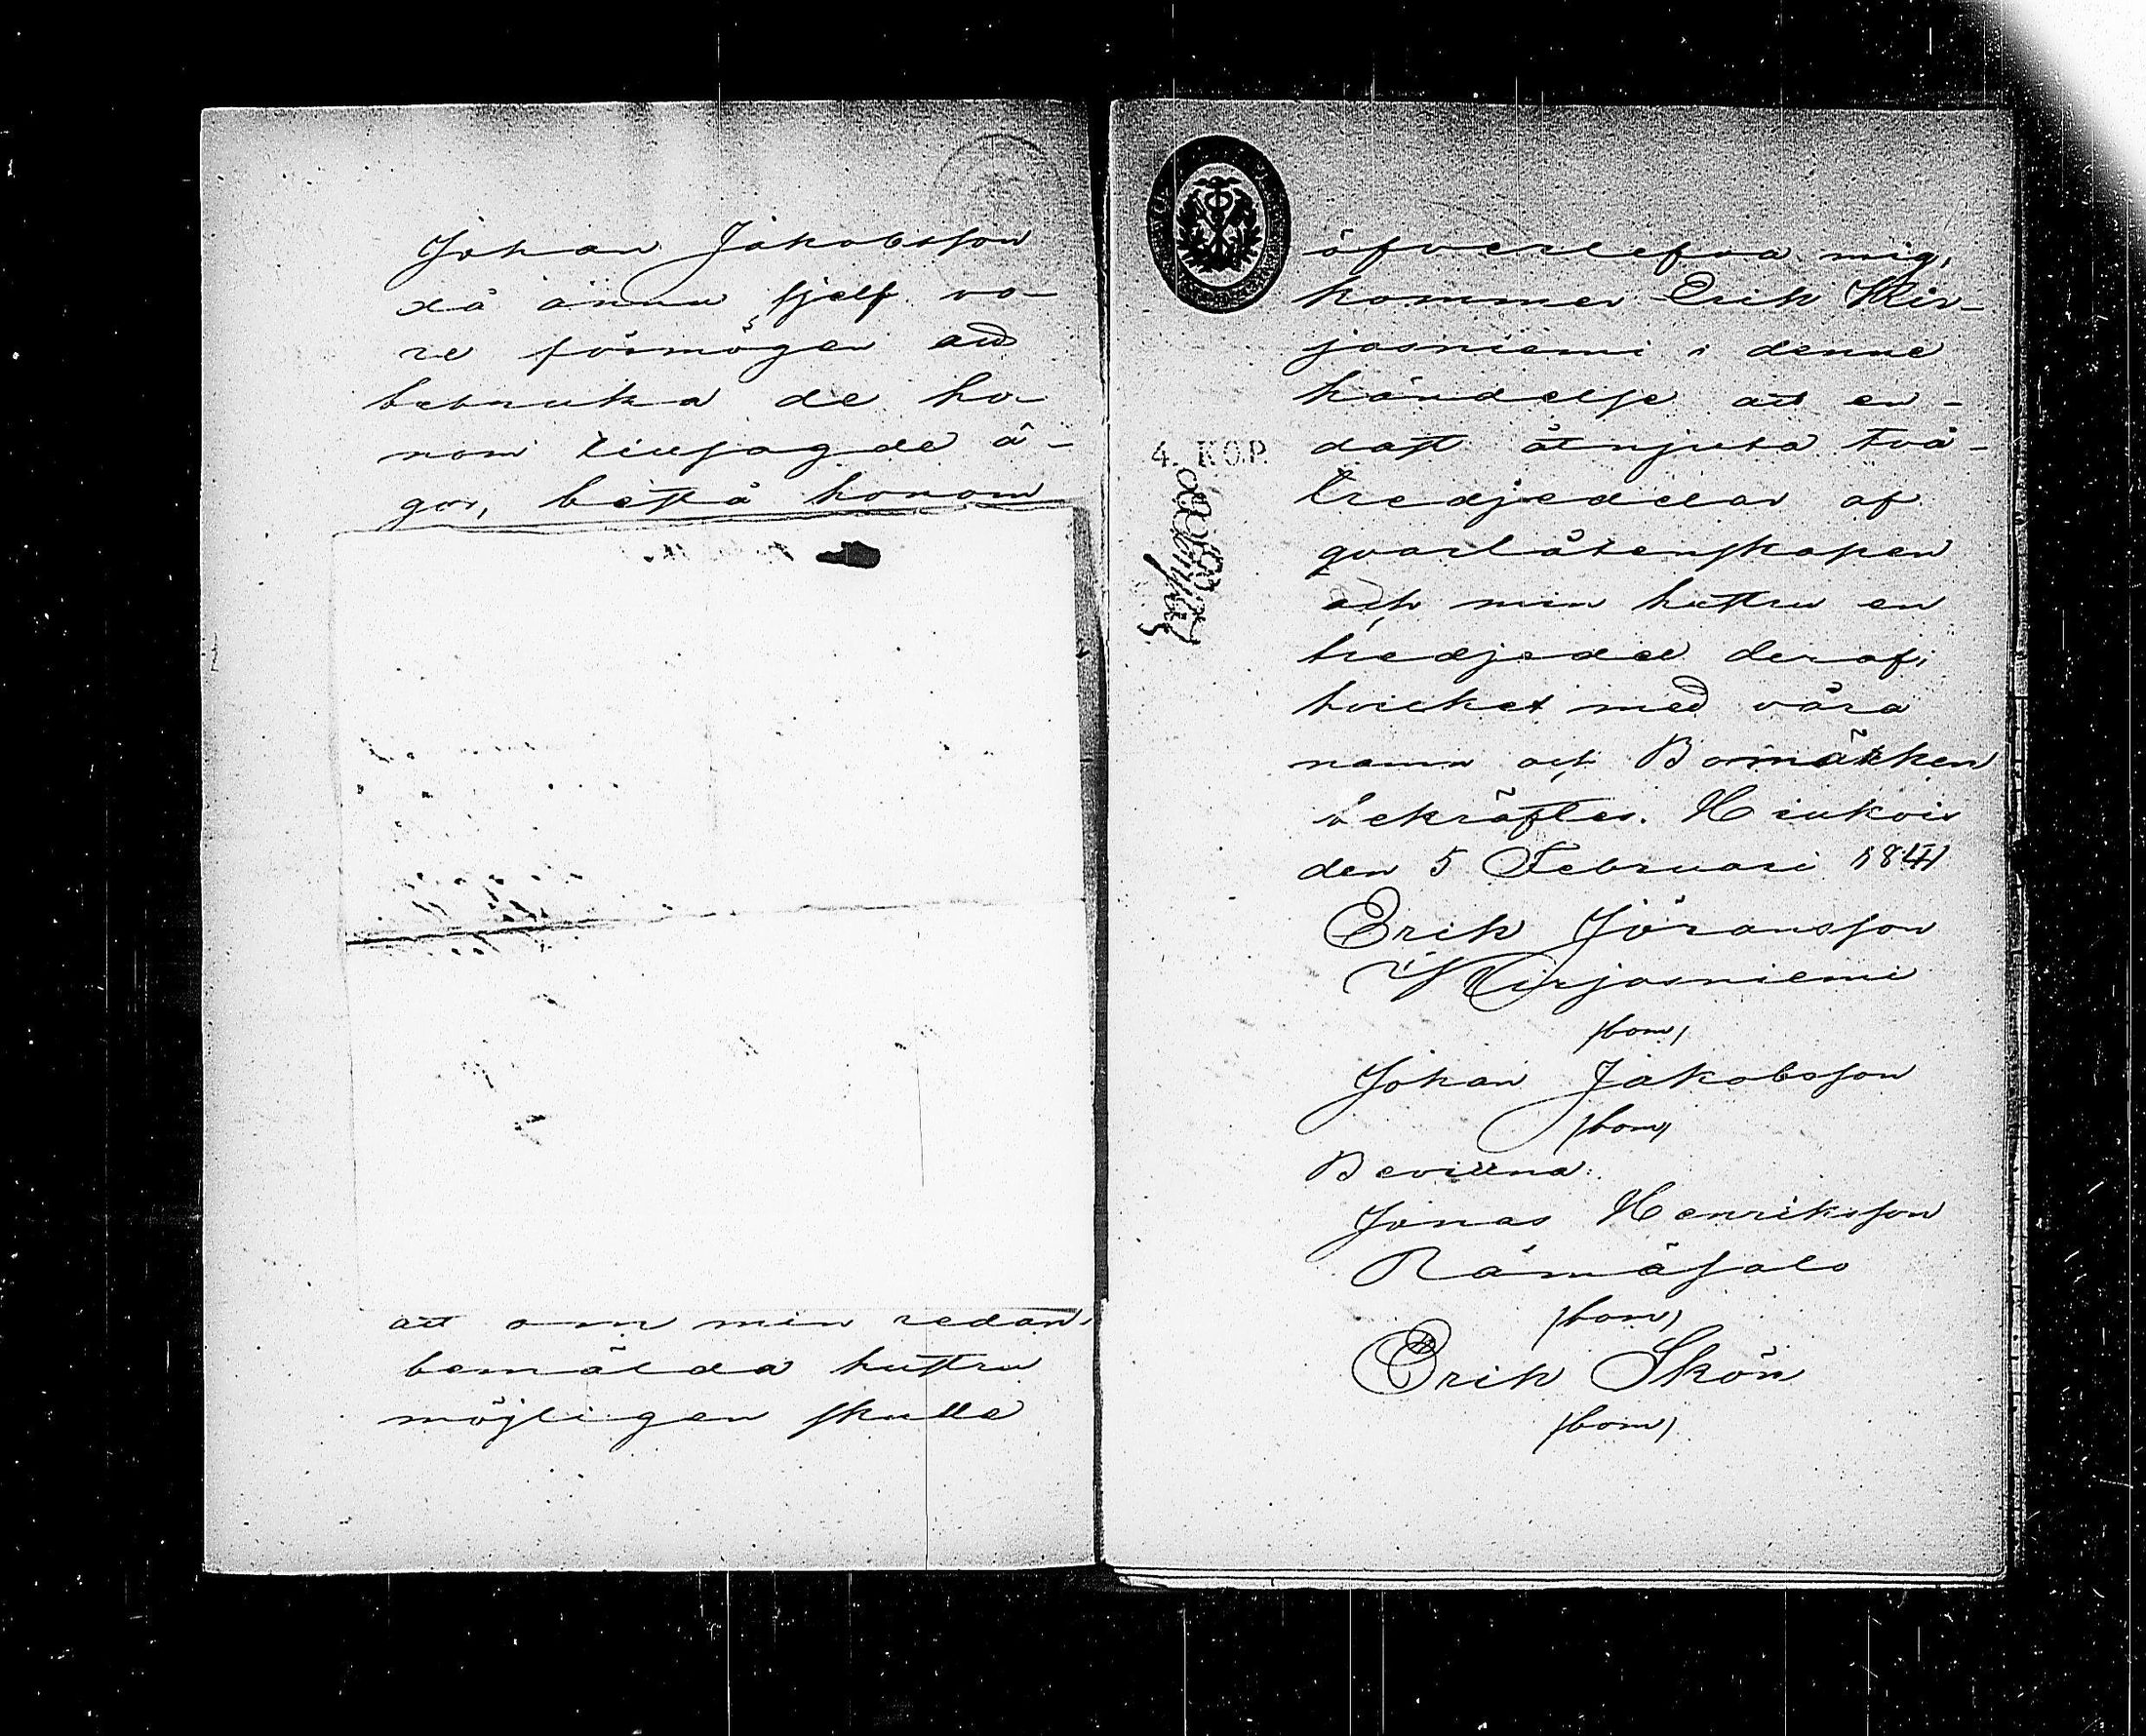 Johan Jakobsson
då ännu sjelf vo-
re förmögen att
bebruka de ho-
nom tillsagde ä-
gor, bestå honom
att om min redan
bemälda hustru
möjligen skulle
öfverlefva mig,
kommer Erik Kir-
josniemi i denne
händelse att en-
dast åtnjuta två-
tredjedelar af
qvarlåtenskapen
och min hustru en
tredjedel deraf,
hvilket med våra
namn och Bomärken
bekräftes. Hiukois
den 5 Februari 1841
4. KOP.
Erik Jöransson
Kirjosniemi
/bom/
Johan Jakobsson
/bom/
Bevittna:
Jonas Henriksson
Rämäsalo
/bom/
Erik Skön
/bom/